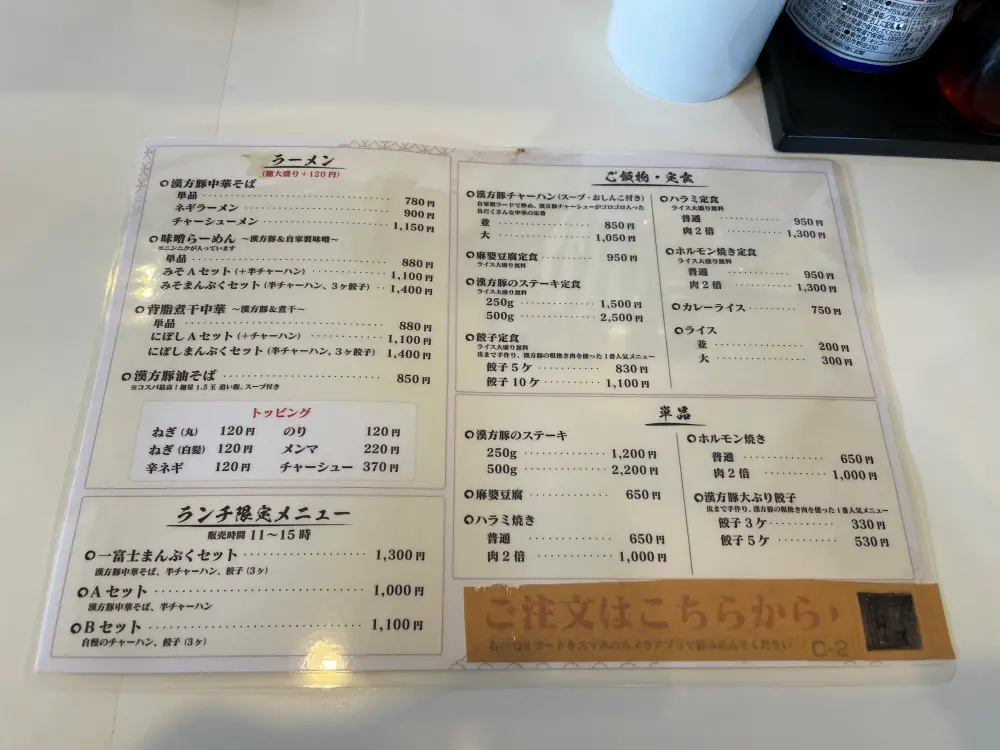 ラーメン
(麺大盛り+120円)
漢方豚中華そば
単品 780円
ネギラーメン 900円
チャーシューメン 1,150円
味噌らーめん ～漢方豚&自家製味噌～
※ニンニクが入っています
単品 880円
みそAセット(+半チャーハン) 1,100円
みそまんぷくセット(半チャーハン、3ヶ餃子) 1,400円
背脂煮干中華 ～漢方豚&煮干～
単品 880円
にぼしAセット(+チャーハン) 1,100円
にぼしまんぷくセット(半チャーハン,3ヶ餃子) 1,400円
漢方豚油そば 850円
※コスパ最高!麺量1.5玉 追い飯、スープ付き
トッピング
ねぎ(丸) 120円 のり 120円
ねぎ(白髪) 120円 メンマ 220円
辛ネギ 120円 チャーシュー 370円
ランチ限定メニュー
販売時間 11～15時
一富士まんぷくセット 1,300円
漢方豚中華そば、半チャーハン、餃子(3ヶ)
Aセット 1,000円
漢方豚中華そば、半チャーハン
Bセット 1,100円
自慢のチャーハン、餃子(3ヶ)
ご飯物・定食
漢方豚チャーハン(スープ・おしんこ付き)
自家製ラードで炒め、漢方豚チャーシューがゴロゴロ入った
具だくさんな中華の定番
並 850円
大 1,050円
麻婆豆腐定食 950円
ライス大盛り無料
漢方豚のステーキ定食
ライス大盛り無料
250g 1,500円
500g 2,500円
餃子定食
ライス大盛り無料
皮まで手作り、漢方豚の粗挽き肉を使った1番人気メニュー
餃子5ケ 830円
餃子10ケ 1,100円
ハラミ定食
ライス大盛り無料
普通 950円
肉2倍 1,300円
ホルモン焼き定食
ライス大盛り無料
普通 950円
肉2倍 1,300円
カレーライス 750円
ライス
並 200円
大 300円
単品
漢方豚のステーキ
250g 1,200円
500g 2,200円
麻婆豆腐 650円
ハラミ焼き
普通 650円
肉2倍 1,000円
ホルモン焼き
普通 650円
肉2倍 1,000円
漢方豚大ぶり餃子
皮まで手作り、漢方豚の粗挽き肉を使った1番人気メニュー
餃子3ケ 330円
餃子5ケ 530円
ご注文はこちらから
QRコードをスマホのカメラアプリで読み込んでください
C-2